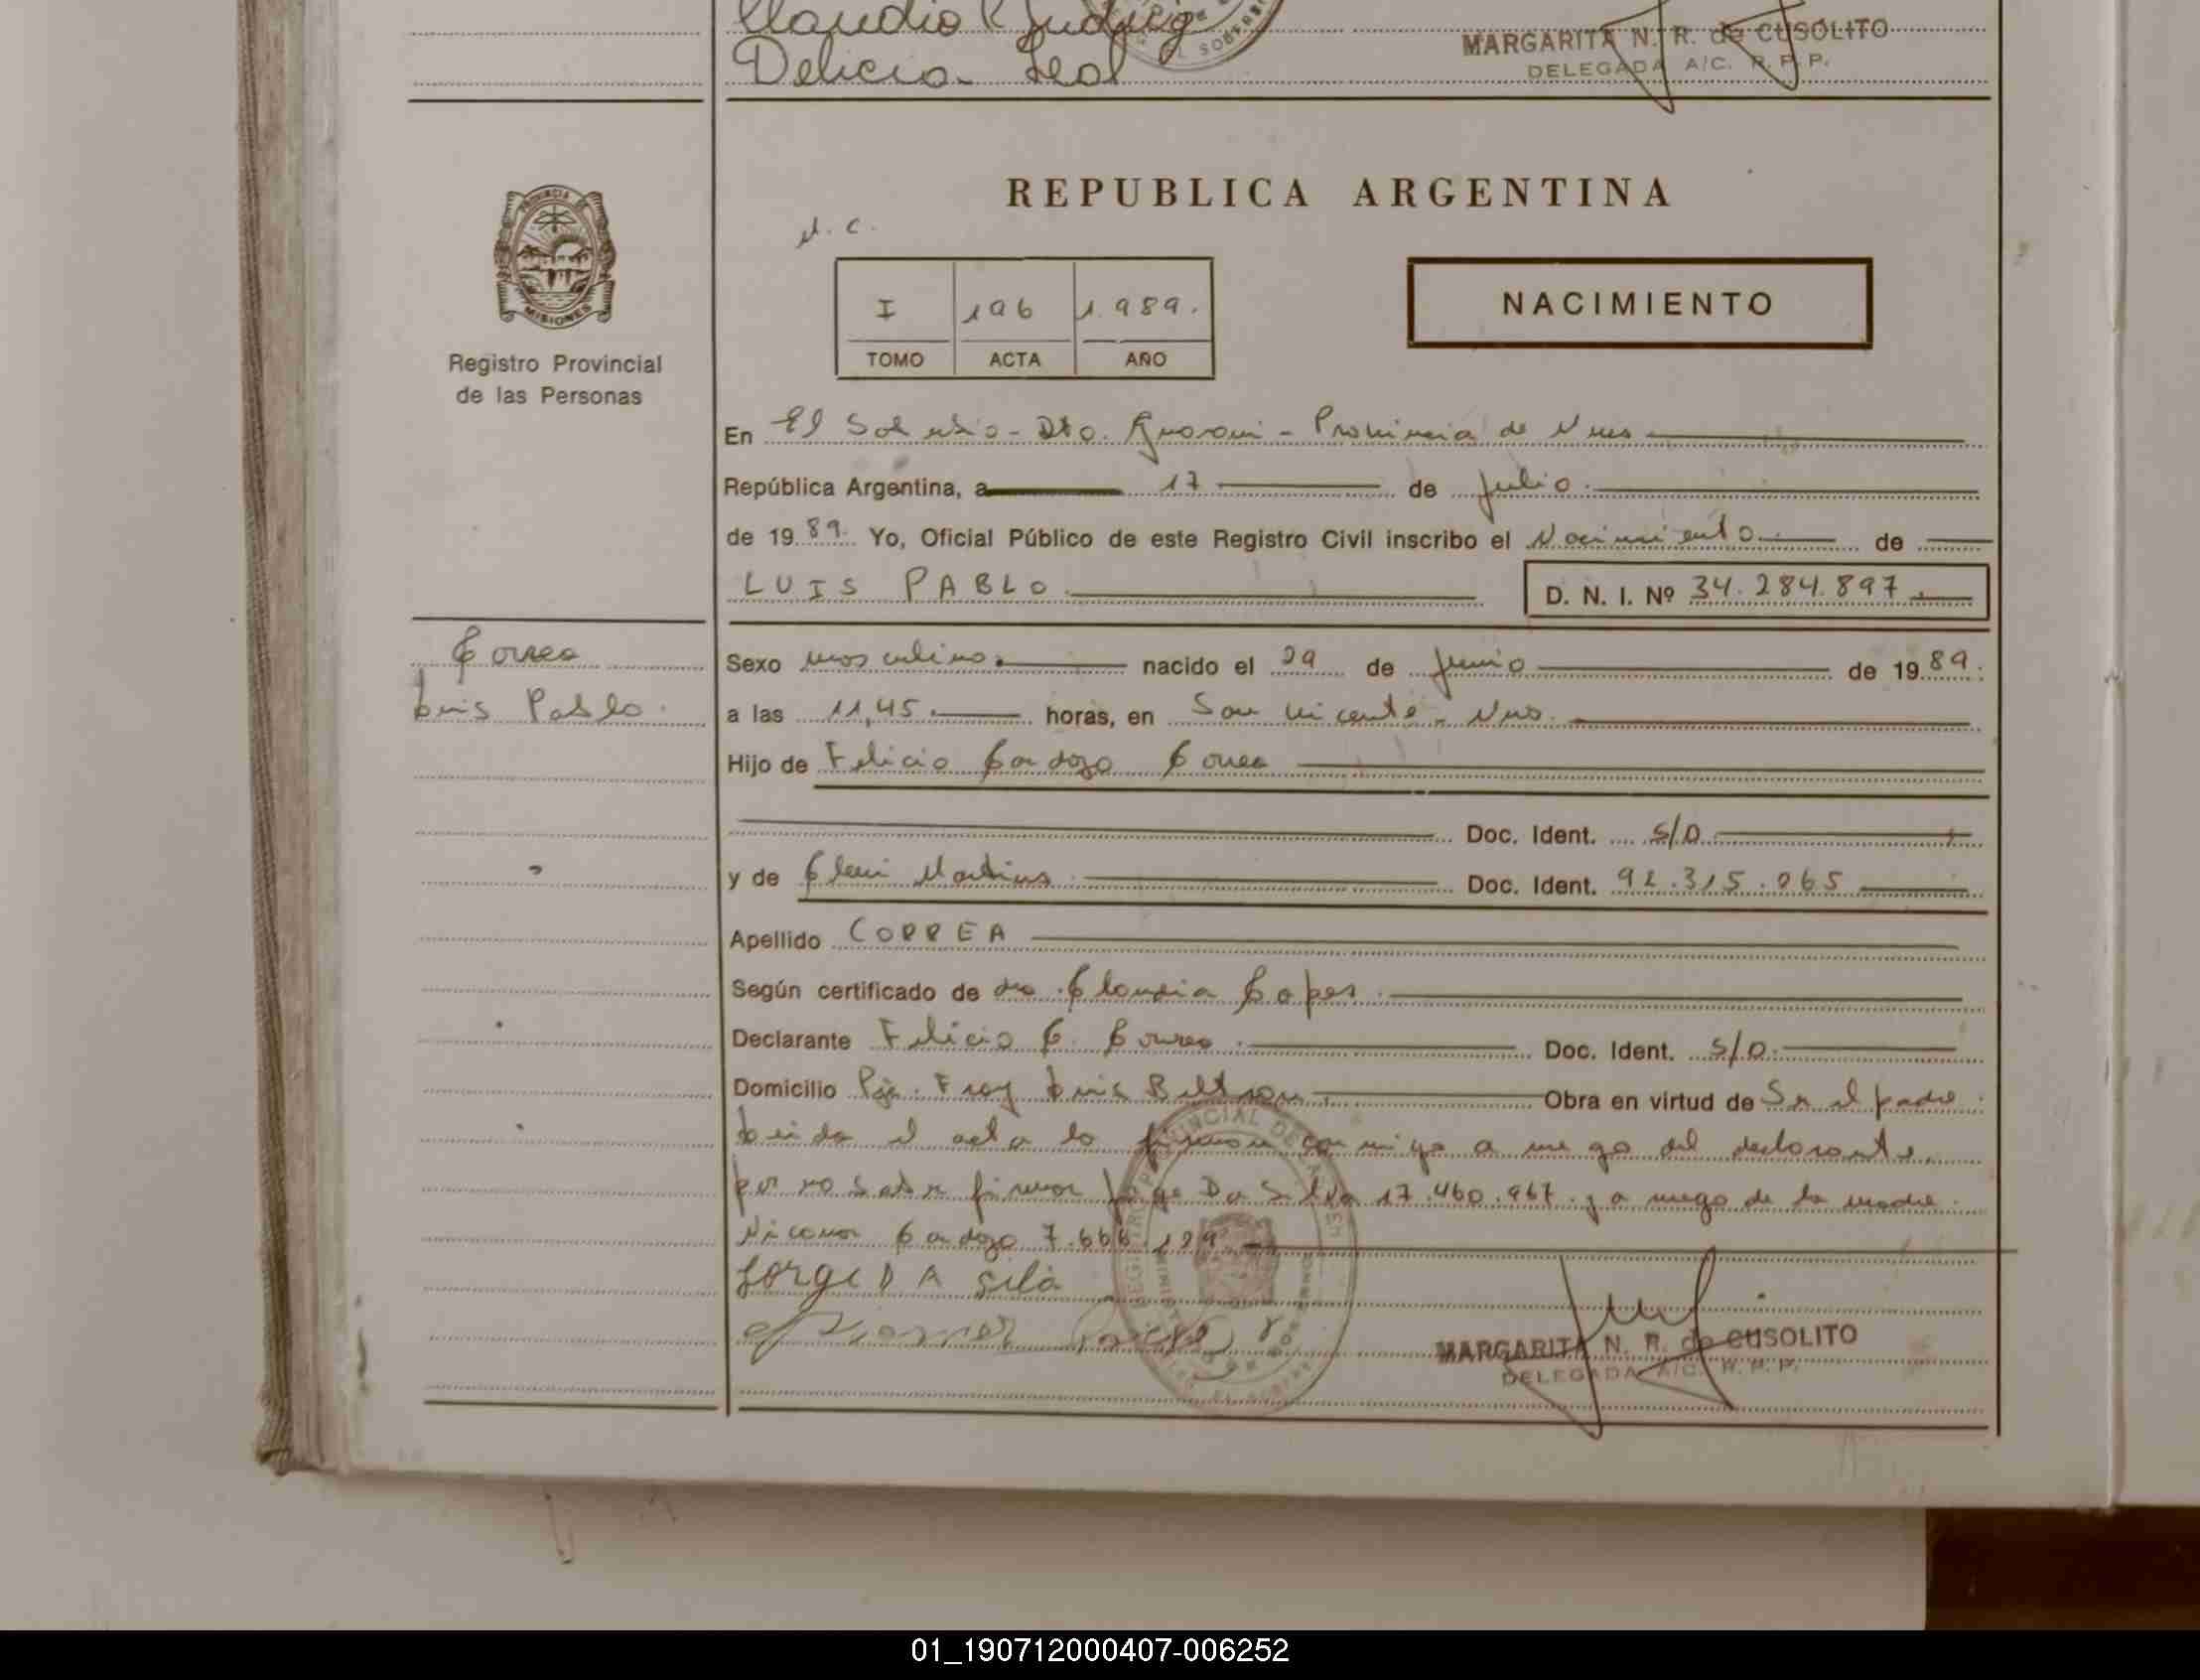 Claudio R Ludwig
Delicia Leal
MARGARITA N. R. de CUSOLITO
DELEGADA A/C. R. P. P.
REPUBLICA ARGENTINA
PROVINCIA DE
MISIONES
Registro Provincial
de las Personas
I 196 1.989.
TOMO ACTA AÑO
NACIMIENTO
En El Soberbio - Dto. Guarani - Provincia de Mnes
República Argentina, a 17 de Julio
de 1989. Yo, Oficial Público de este Registro Civil inscribo el Nacimiento de
LUIS PABLO D. N. I. Nº 34.284.897.
Correa
Luis Pablo.
Sexo masculino. nacido el 29 de Junio de 1989.
a las 11,45 horas, en San Vicente - Mnes.
Hijo de Felicio Cardozo Correa
Doc. Ident. S/D
y de Cleni Martins Doc. Ident. 92.315.065
Apellido CORREA
Según certificado de dra. Claudia Lopes
Declarante Felicio C. Correa Doc. Ident. S/D.
Domicilio Pje. Fray Luis Beltran Obra en virtud de Ser el padre.
Leida el acta la firman conmigo a ruego del declarante
por no saber firmar Jorge Da Silva 17.460.967. y a ruego de la madre
Nicanor Cardozo 7.666.199
Jorge DA sila
MARGARITA N. R. de CUSOLITO
DELEGADA A/C. R. P. P.
01_190712000407-006252